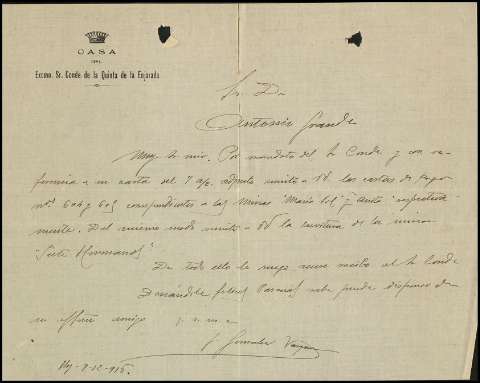 CASA
DEL
Excmo. Sr. Conde de la Quinta de la Enjarada
Sr. Dn
Antonio Grande
Muy Sr mio: Por mandato del Sr Conde y con re-
ferencia a su carta del 7 a/c. adjunto remito a Vd. las cartas de pago
nos. 604 y 605 correspondientes a las Minas "Maria
mente. Del mismo modo remito a Vd la escritura de la mina
"Siete Hermanos"
De todo ello le ruego acuse recibo al Sr Conde
Deseándole felices Pascuas sabe puede disponer de
su affmo amigo q. s. m. e
J. Gonzalez